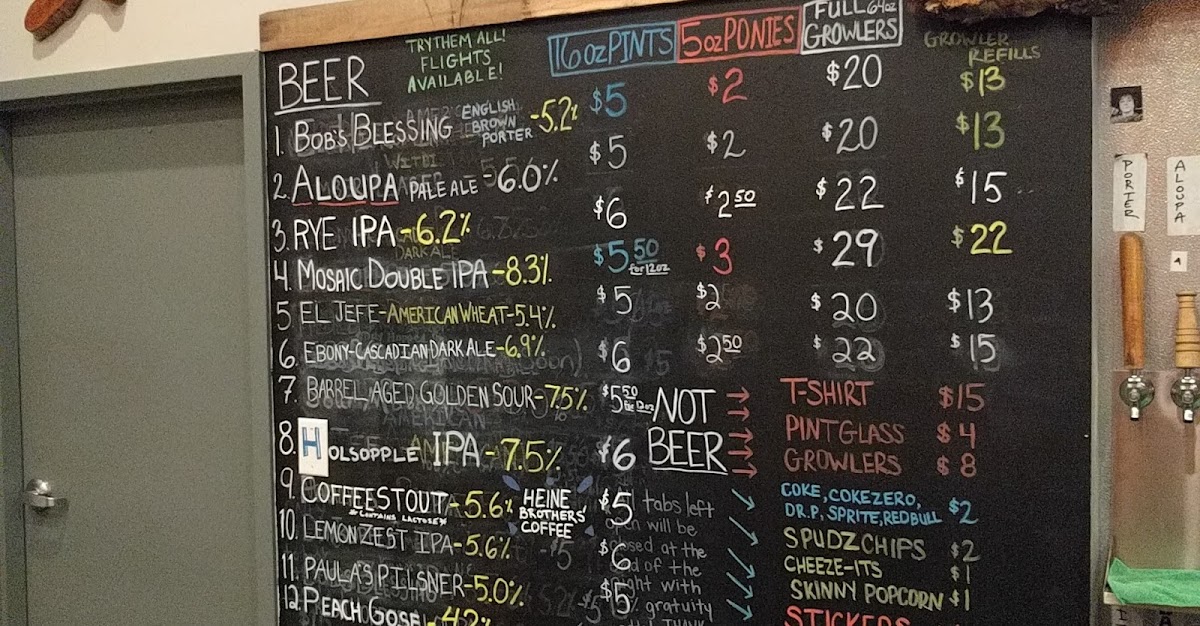 TRY THEM ALL!
FLIGHTS
AVAILABLE!
16oz PINTS 5oz PONIES FULL 64oz GROWLERS GROWLER REFILLS
BEER
1. BOB'S BLESSING ENGLISH BROWN PORTER -5.2% $5 $2 $20 $13
2. ALOUPA PALE ALE -6.0% $5 $2 $20 $13
3. RYE IPA -6.2% $6 $2 50 $22 $15
4 MOSAIC DOUBLE IPA -8.3% $5 50 for 12oz $3 $29 $22
5 EL JEFE-AMERICAN WHEAT-5.4% $5 $2 $20 $13
6. EBONY-CASCADIAN DARK ALE-6.9% $6 $2 50 $22 $15
7. BARREL AGED GOLDEN SOUR-7.5% $5 50 for 12oz
8. HOLSOPPLE IPA -7.5% $6
9. COFFEE STOUT -5.6% HEINE BROTHERS' COFFEE $5
*CONTAINS LACTOSE*
10. LEMON ZEST IPA-5.6% $6
11. PAULA'S PILSNER-5.0% $5
12 PEACH GOSE -4.2
NOT
BEER
T-SHIRT $15
PINT GLASS $4
GROWLERS $8
COKE, COKE ZERO,
DR.P, SPRITE, REDBULL $2
SPUDZ CHIPS $2
CHEEZE-ITS $1
SKINNY POPCORN $1
STICKERS
tabs left
open will be
closed at the
end of the
night with
% gratuity
PORTER
ALOUPA